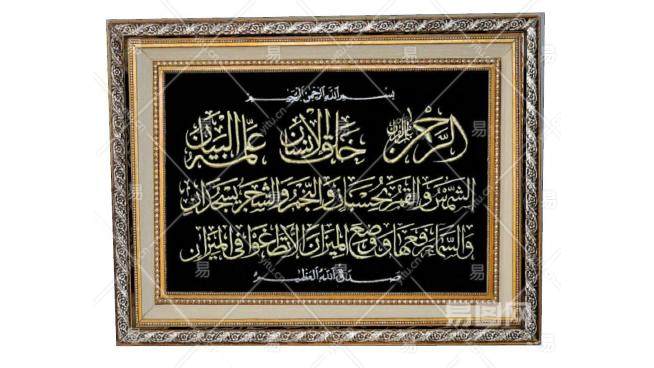 بسم الله الرحمن الرحيم
الرحمن علم القرآن خلق الإنسان علمه البيان
الشمس والقمر بحسبان والنجم والشجر يسجدان
والسماء رفعها ووضع الميزان ألا تطغوا في الميزان
صدق الله العظيم
易图网